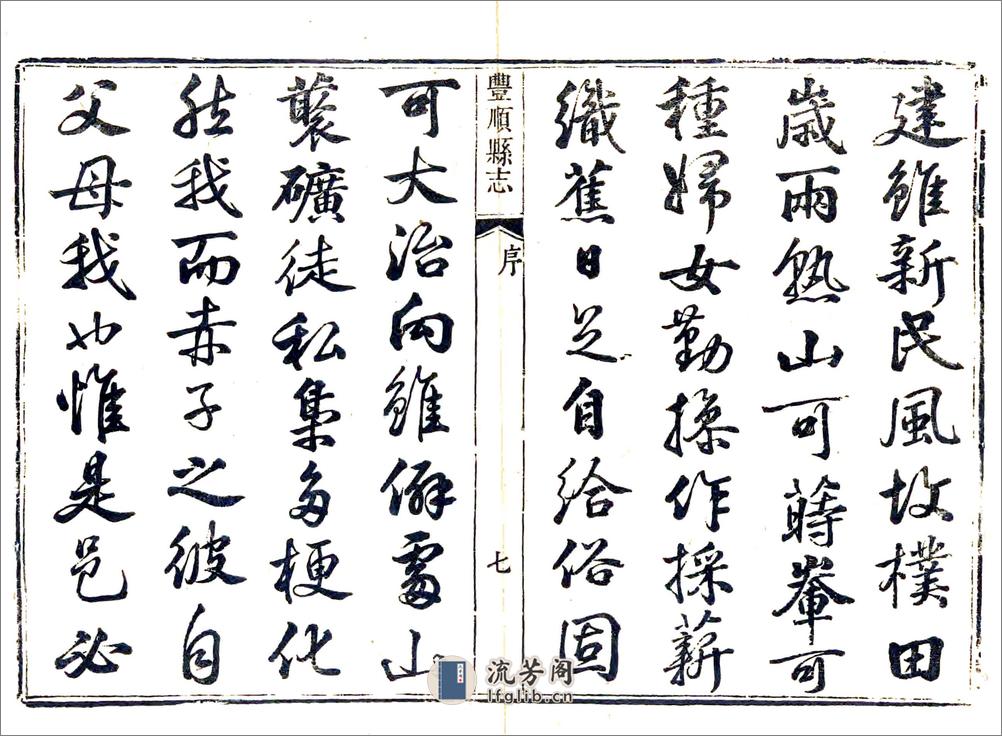 建雖新民風故樸田
歲兩熟山可蒔輋可
種婦女勤操作採薪
織蕉日足自給俗固
豐順縣志
序
七
可大治向雖僻處山
藂礦徒私集多梗化
然我而赤子之彼自
父母我也惟是邑必
流芳阁
lfglib.cn